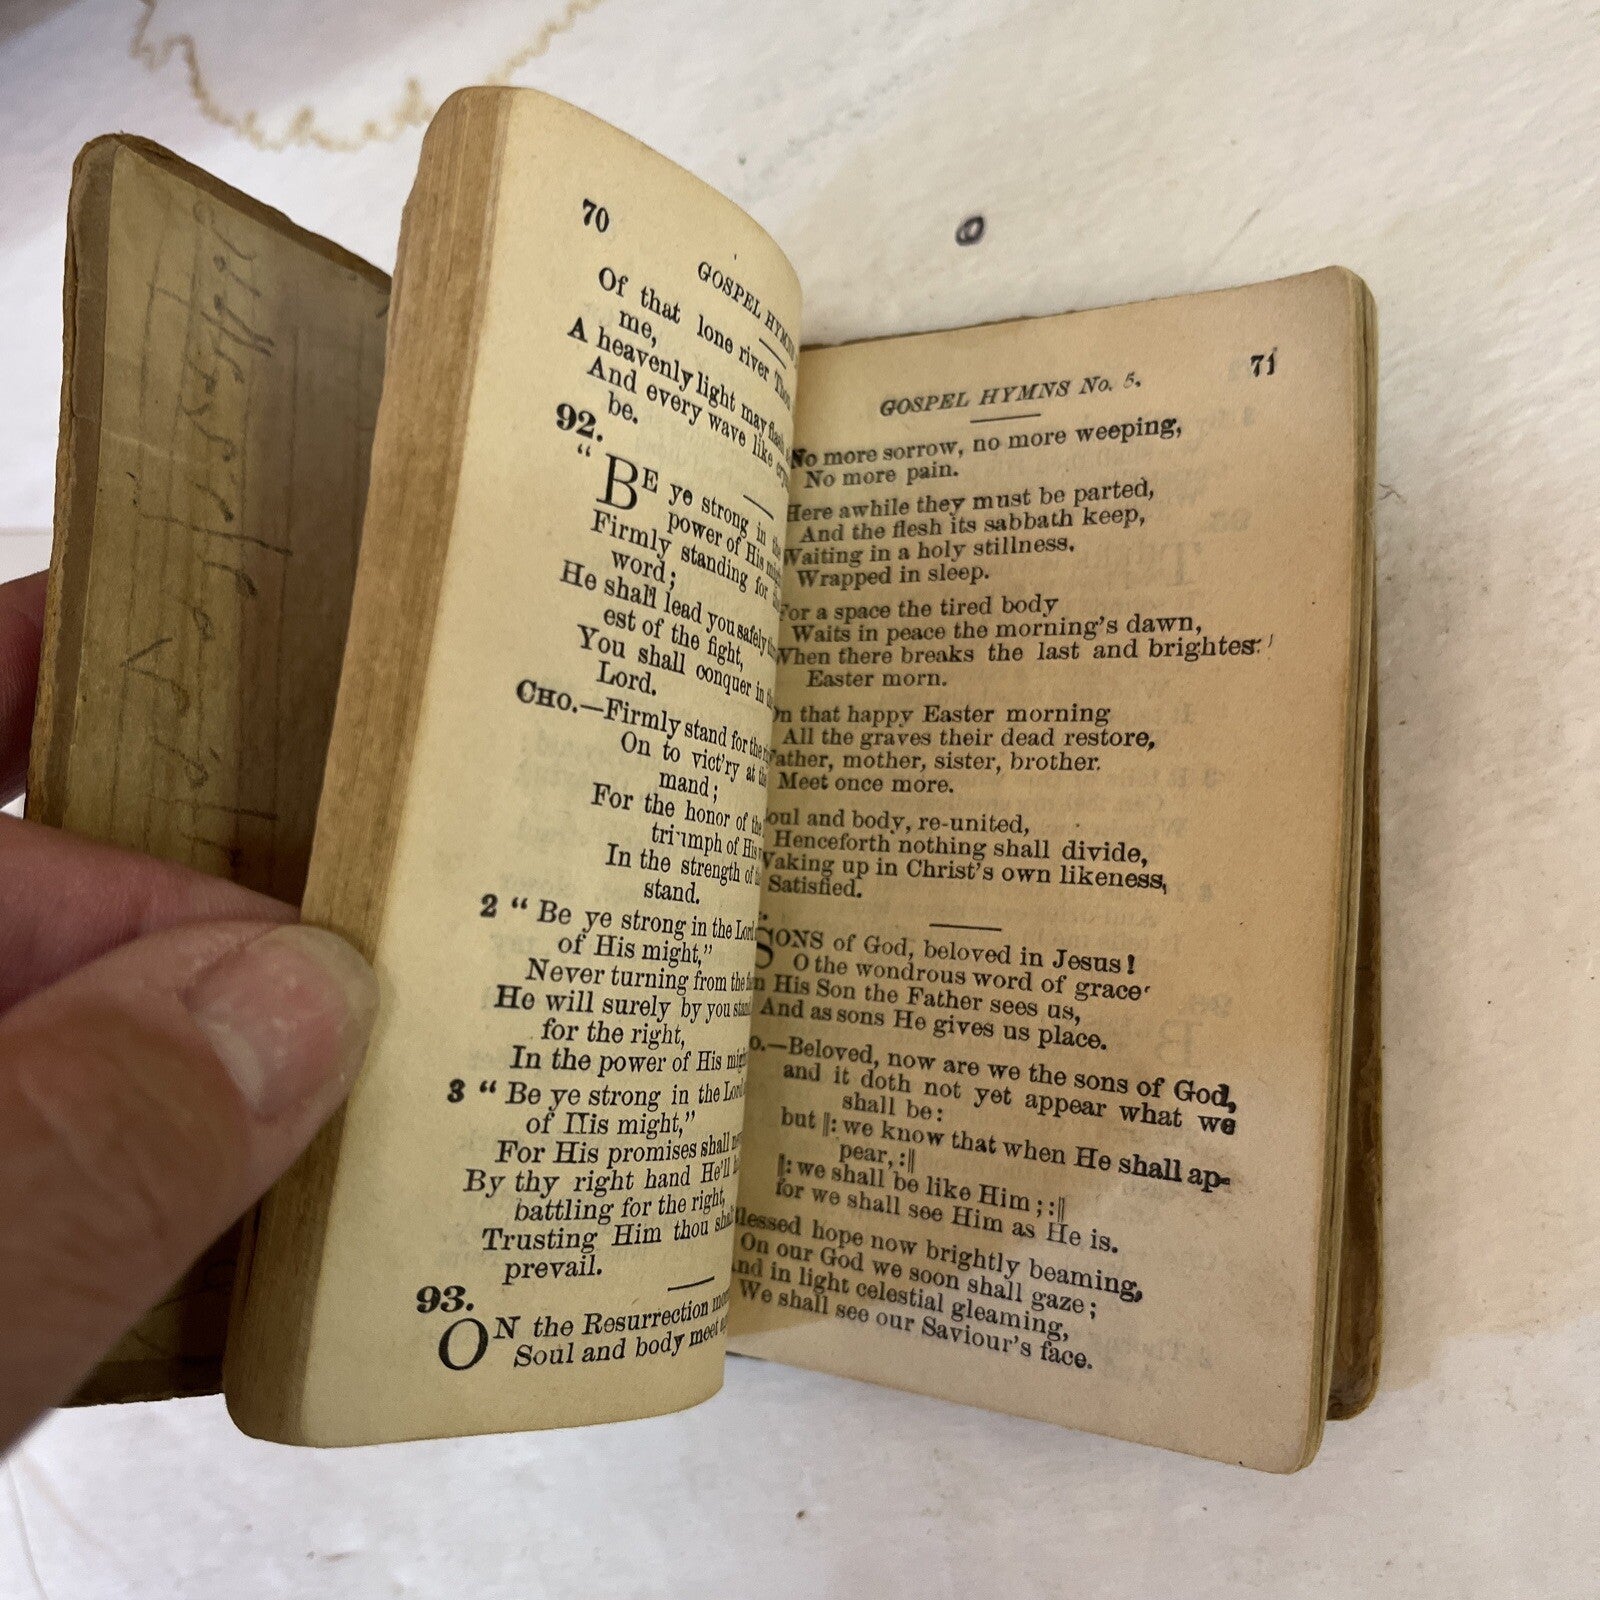 70
GOSPEL HYMNS
Of that lone river Thou
me,
A heavenly light may flash
And every wave like
be.
92.
"BE ye strong in the
power of His might
Firmly standing for
word;
He shall lead you safely
est of the fight,
You shall conquer in
Lord.
CHO.—Firmly stand for the
On to vict'ry at
mand;
For the honor of the
triumph of His
In the strength of
stand.
2 "Be ye strong in the Lord
of His might,"
Never turning from the
He will surely by you
for the right,
In the power of His
3 "Be ye strong in the Lord
of His might,"
For His promises shall
By thy right hand He'll
battling for the right,
Trusting Him thou
prevail.
93.
ON the Resurrection
Soul and body meet
GOSPEL HYMNS No. 5.
71
No more sorrow, no more weeping,
No more pain.
Here awhile they must be parted,
And the flesh its sabbath keep,
Waiting in a holy stillness,
Wrapped in sleep.
For a space the tired body
Waits in peace the morning's dawn,
When there breaks the last and brightest
Easter morn.
On that happy Easter morning
All the graves their dead restore,
Father, mother, sister, brother.
Meet once more.
Soul and body, re-united,
Henceforth nothing shall divide,
Waking up in Christ's own likeness,
Satisfied.
SONS of God, beloved in Jesus!
O the wondrous word of grace
In His Son the Father sees us,
And as sons He gives us place.
o.—Beloved, now are we the sons of God,
and it doth not yet appear what we
shall be:
but ‖: we know that when He shall ap-
pear, :‖
‖: we shall be like Him; :‖
for we shall see Him as He is.
Blessed hope now brightly beaming,
On our God we soon shall gaze;
And in light celestial gleaming,
We shall see our Saviour's face.